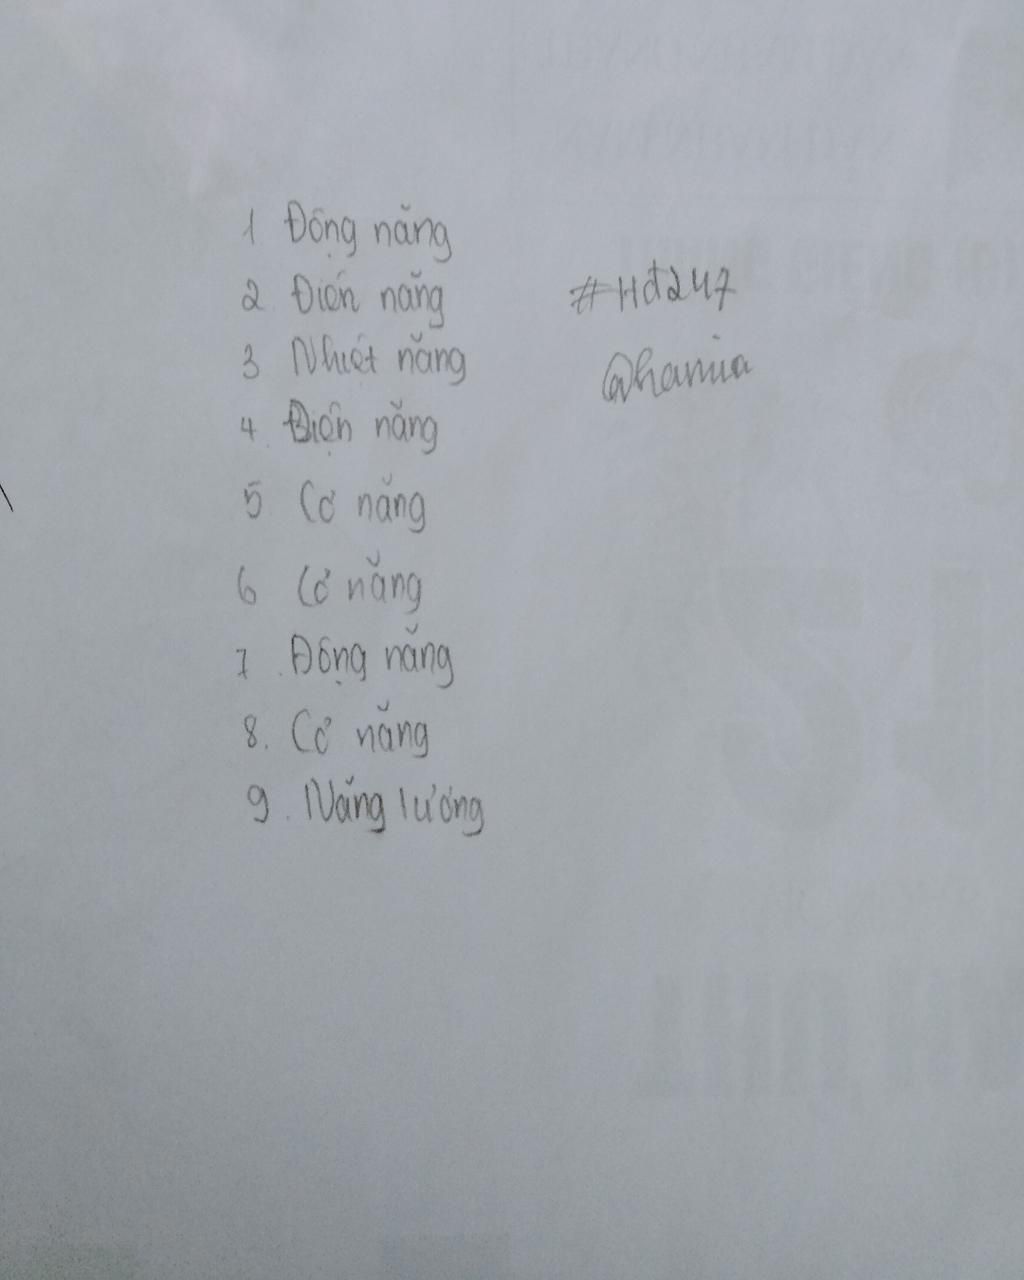 1 Động năng
2 Điến năng
3 Nhiệt năng
4. Điện năng
5 Cơ năng
6 Cơ năng
7. Động năng
8. Cơ năng
9. Năng lương
#Hđ247
@hamia